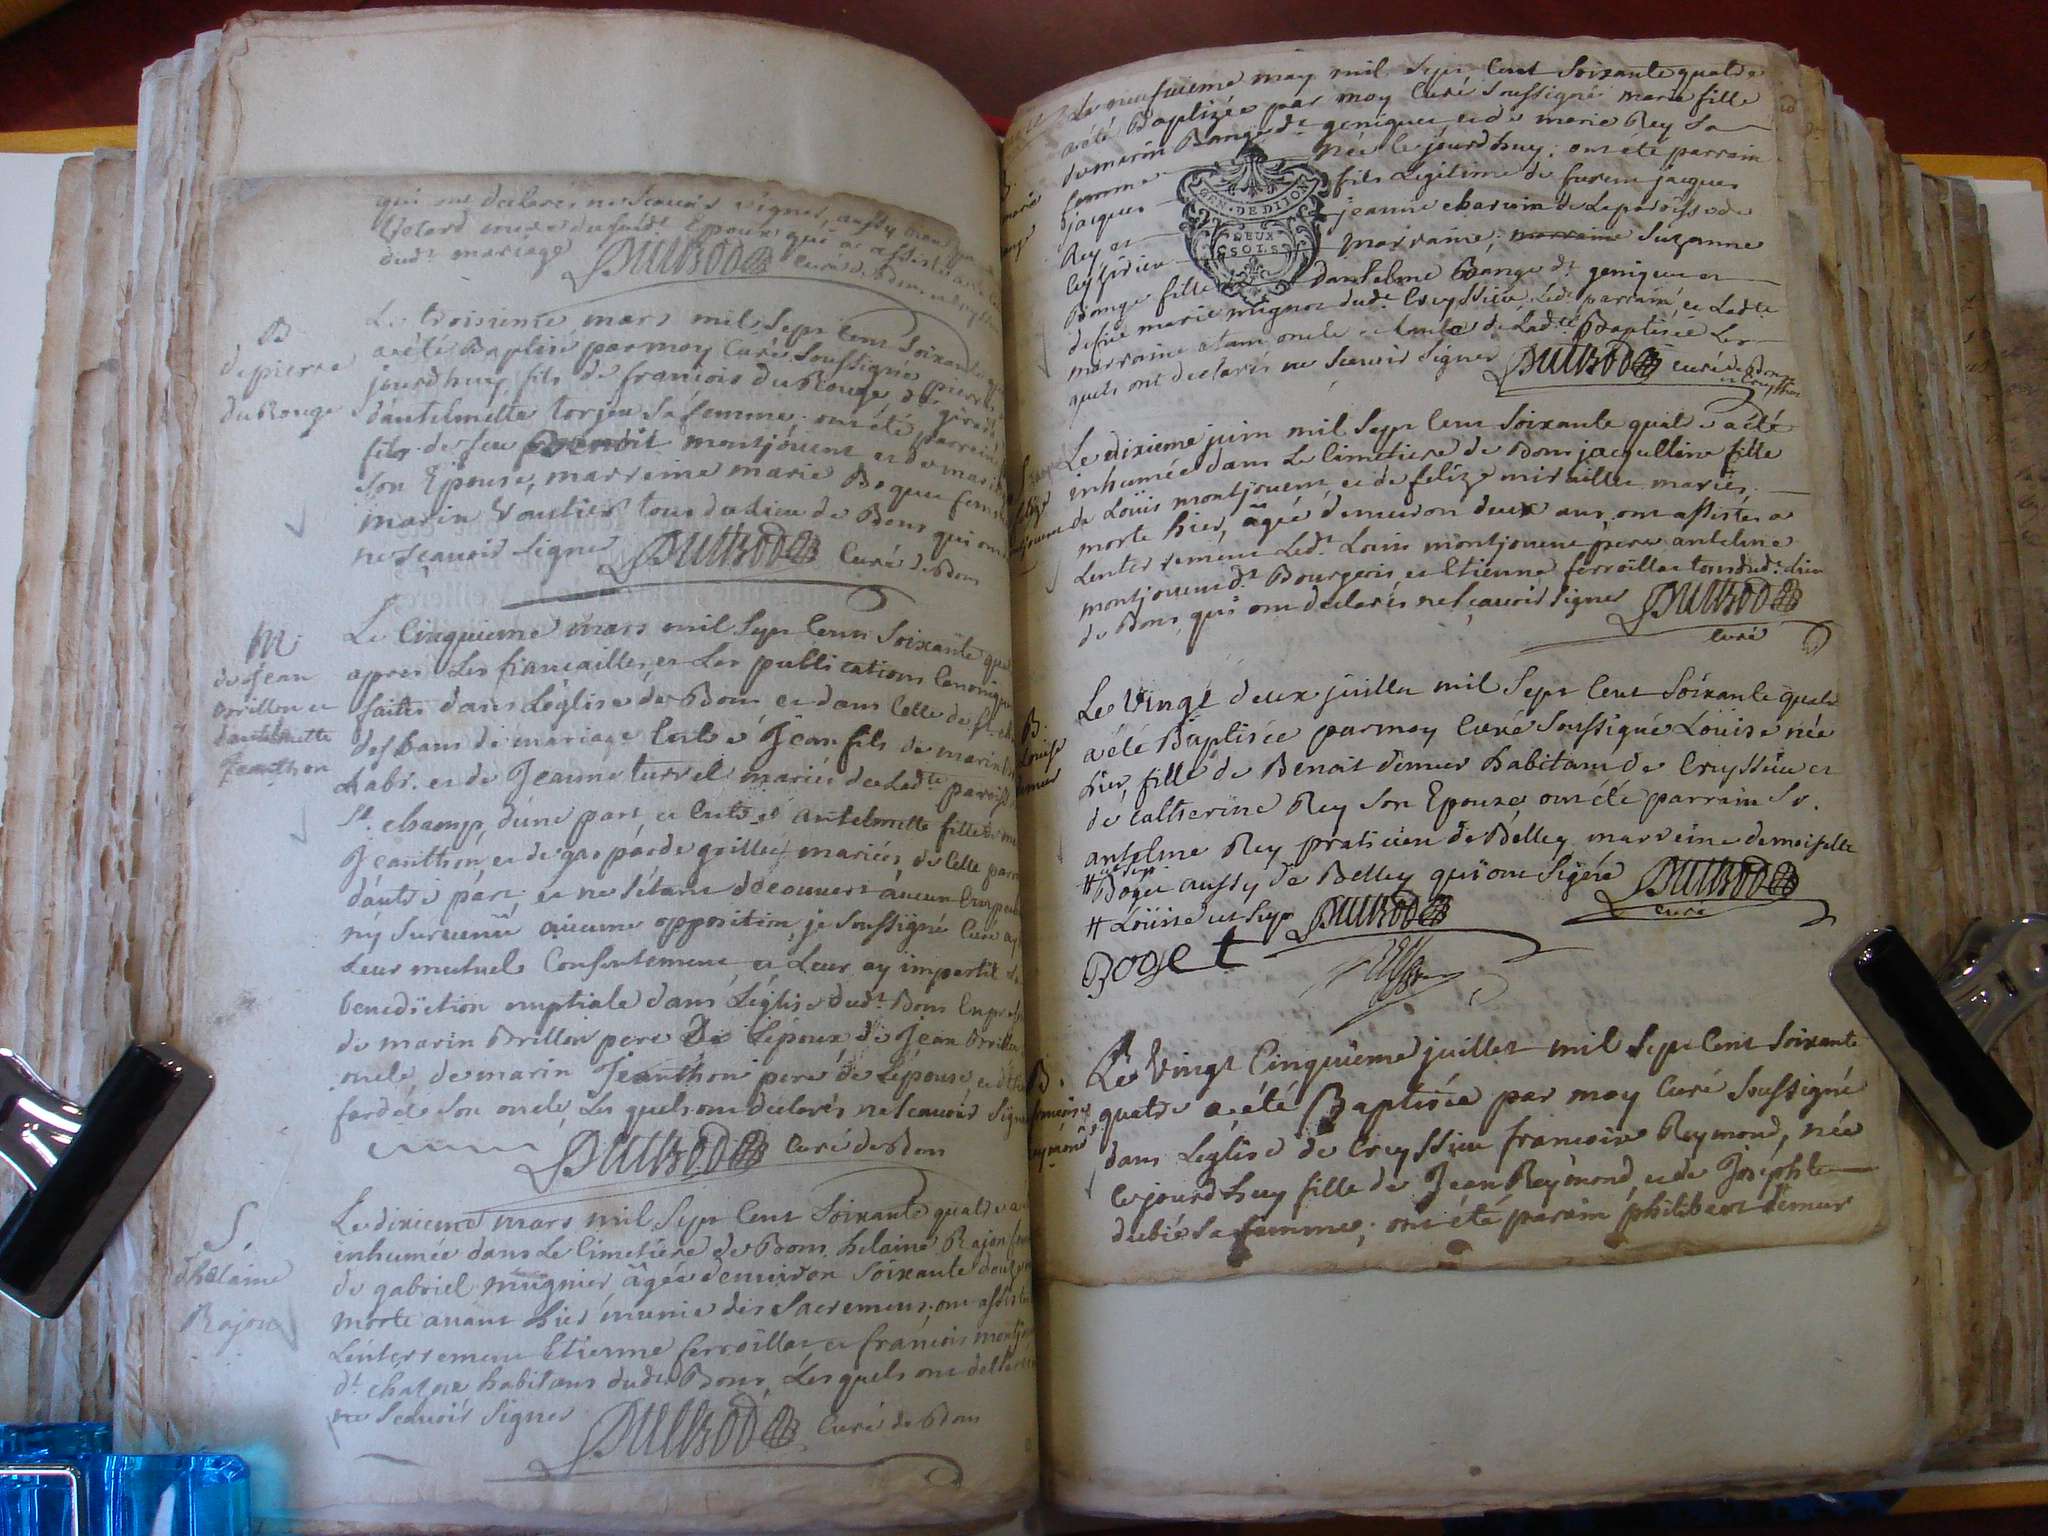 qui ont declarez ne scavoir signer, aussy
dudt mariage
B
de pierre
du Rouge
Le troisieme mars mil sept cent soixante
a été Baptisé par moy Curé soussigné pierre
jourdhuy fils de francois du Rouge dt
dantelmette torjeu sa femme. ont été parrein
fils de feu Benoit montjouent et de marie
son Epouse, marreine marie Boque femme
marin Voultier tous du dieu de Bons qui ont
ne sçavoir signer Curé de Bons
M.
de Jean
Brillon et
dantelmette
Jeanthon
Le Cinquieme mars mil sept Cent soixante
apres Les fiancailles et Les publications Canoniques
faites dans Leglise de Bons et dans Celle de St
des bans de mariage Entre Jean fils de marin
habt. et de Jeanne turrel mariés de Ladte paroisse
St. champ, d'une part et Entre antelmette fille de
Jeanthon, et de gasparde grillet mariés, de Cette
dautre part et ne sétant découvert aucun Emp
ny survenüe aucune opposition, je soussigné Curé ay
Leur mutuel Consentement et Leur ay impartit
benediction nuptiale dans Léglise dudt Bons En
de marin Brillon pere De Lépoux de Jean Brillon
oncle, de marin Jeanthon pere de Lépouse et
son oncle Les quels ont declarés ne scavoir signer
Curé de Bons
S.
dhelaine
Rajon
Le dixieme mars mil sept Cent Soixante quatre a
inhumée dans Le Cimetiere de Bons helaine Rajon
de gabriel mugnier âgée denviron soixante douze
morte avant hier munie des Sacremens. ont assisté
Lénterrement Etienne ferroillet et francois
dt chazne habitans dudt Bons, Lesquels ont declaré
ne scavoir signer Curé de Bons
Le neufvieme may mil sept Cent Soixante quatre
a été Baptizée par moy Curé soussigné marie fille
de marin Bange dt geniquet et de marie Rey sa
femme née le jourdhuy; ont été parrain
jacques fils Legitime de furent jacques
Rey et jeanne charvin de La paroisse de
Ceyssieu marraine, marraine Suzanne
Bange fille dantelme Bange dt geniquet et
de fue marie mugnier dudt Creyssieu Ledt parrain et Ladte
marraine étant oncle et tante de Ladte Baptisée Les
quels ont declarés ne scavoir signer Curé de Bons
et Creyssieu
Le dixieme juin mil sept Cent soixante quatre a été
inhumée dans Le Cimetiere de Bons jacqueline fille
de Loüis montjouent et de felize miraillet mariés,
morte hier, âgée denviron deux ans, ont assistés a
Lenterrement Ledt. Louis montjouent pere antelme
montjouent dt Bourgeois et Etienne ferroillet tous dudt. Lieu
de Bons, qui ont declarés ne sçavoir signer
Curé
B.
Louise
demur
Le Vingt deux juillet mil sept Cent Soixante quatre
a été Baptisée par moy Curé soussigné Loüise née
hier, fille de Benoit demur habitant de Creyssieu et
de Catherine Rey son Epouse ont été parrain Sr.
antelme Rey praticien de Belley marreine demoiselle
# Boget aussy de Belley qui ont signé
Curé
# Loüise
Boget
B.
francoise
Reymond
Le Vingt Cinquieme juillet mil sept Cent soixante
quatre a été Baptisée par moy Curé soussigné
dans Leglise de Creyssieu francoise Reymond, née
Le jourdhuy fille de Jean Reymond et de Josephte
dubié sa femme; ont été parain philibert demur
GEN. DE DIJON
DEUX
SOLS